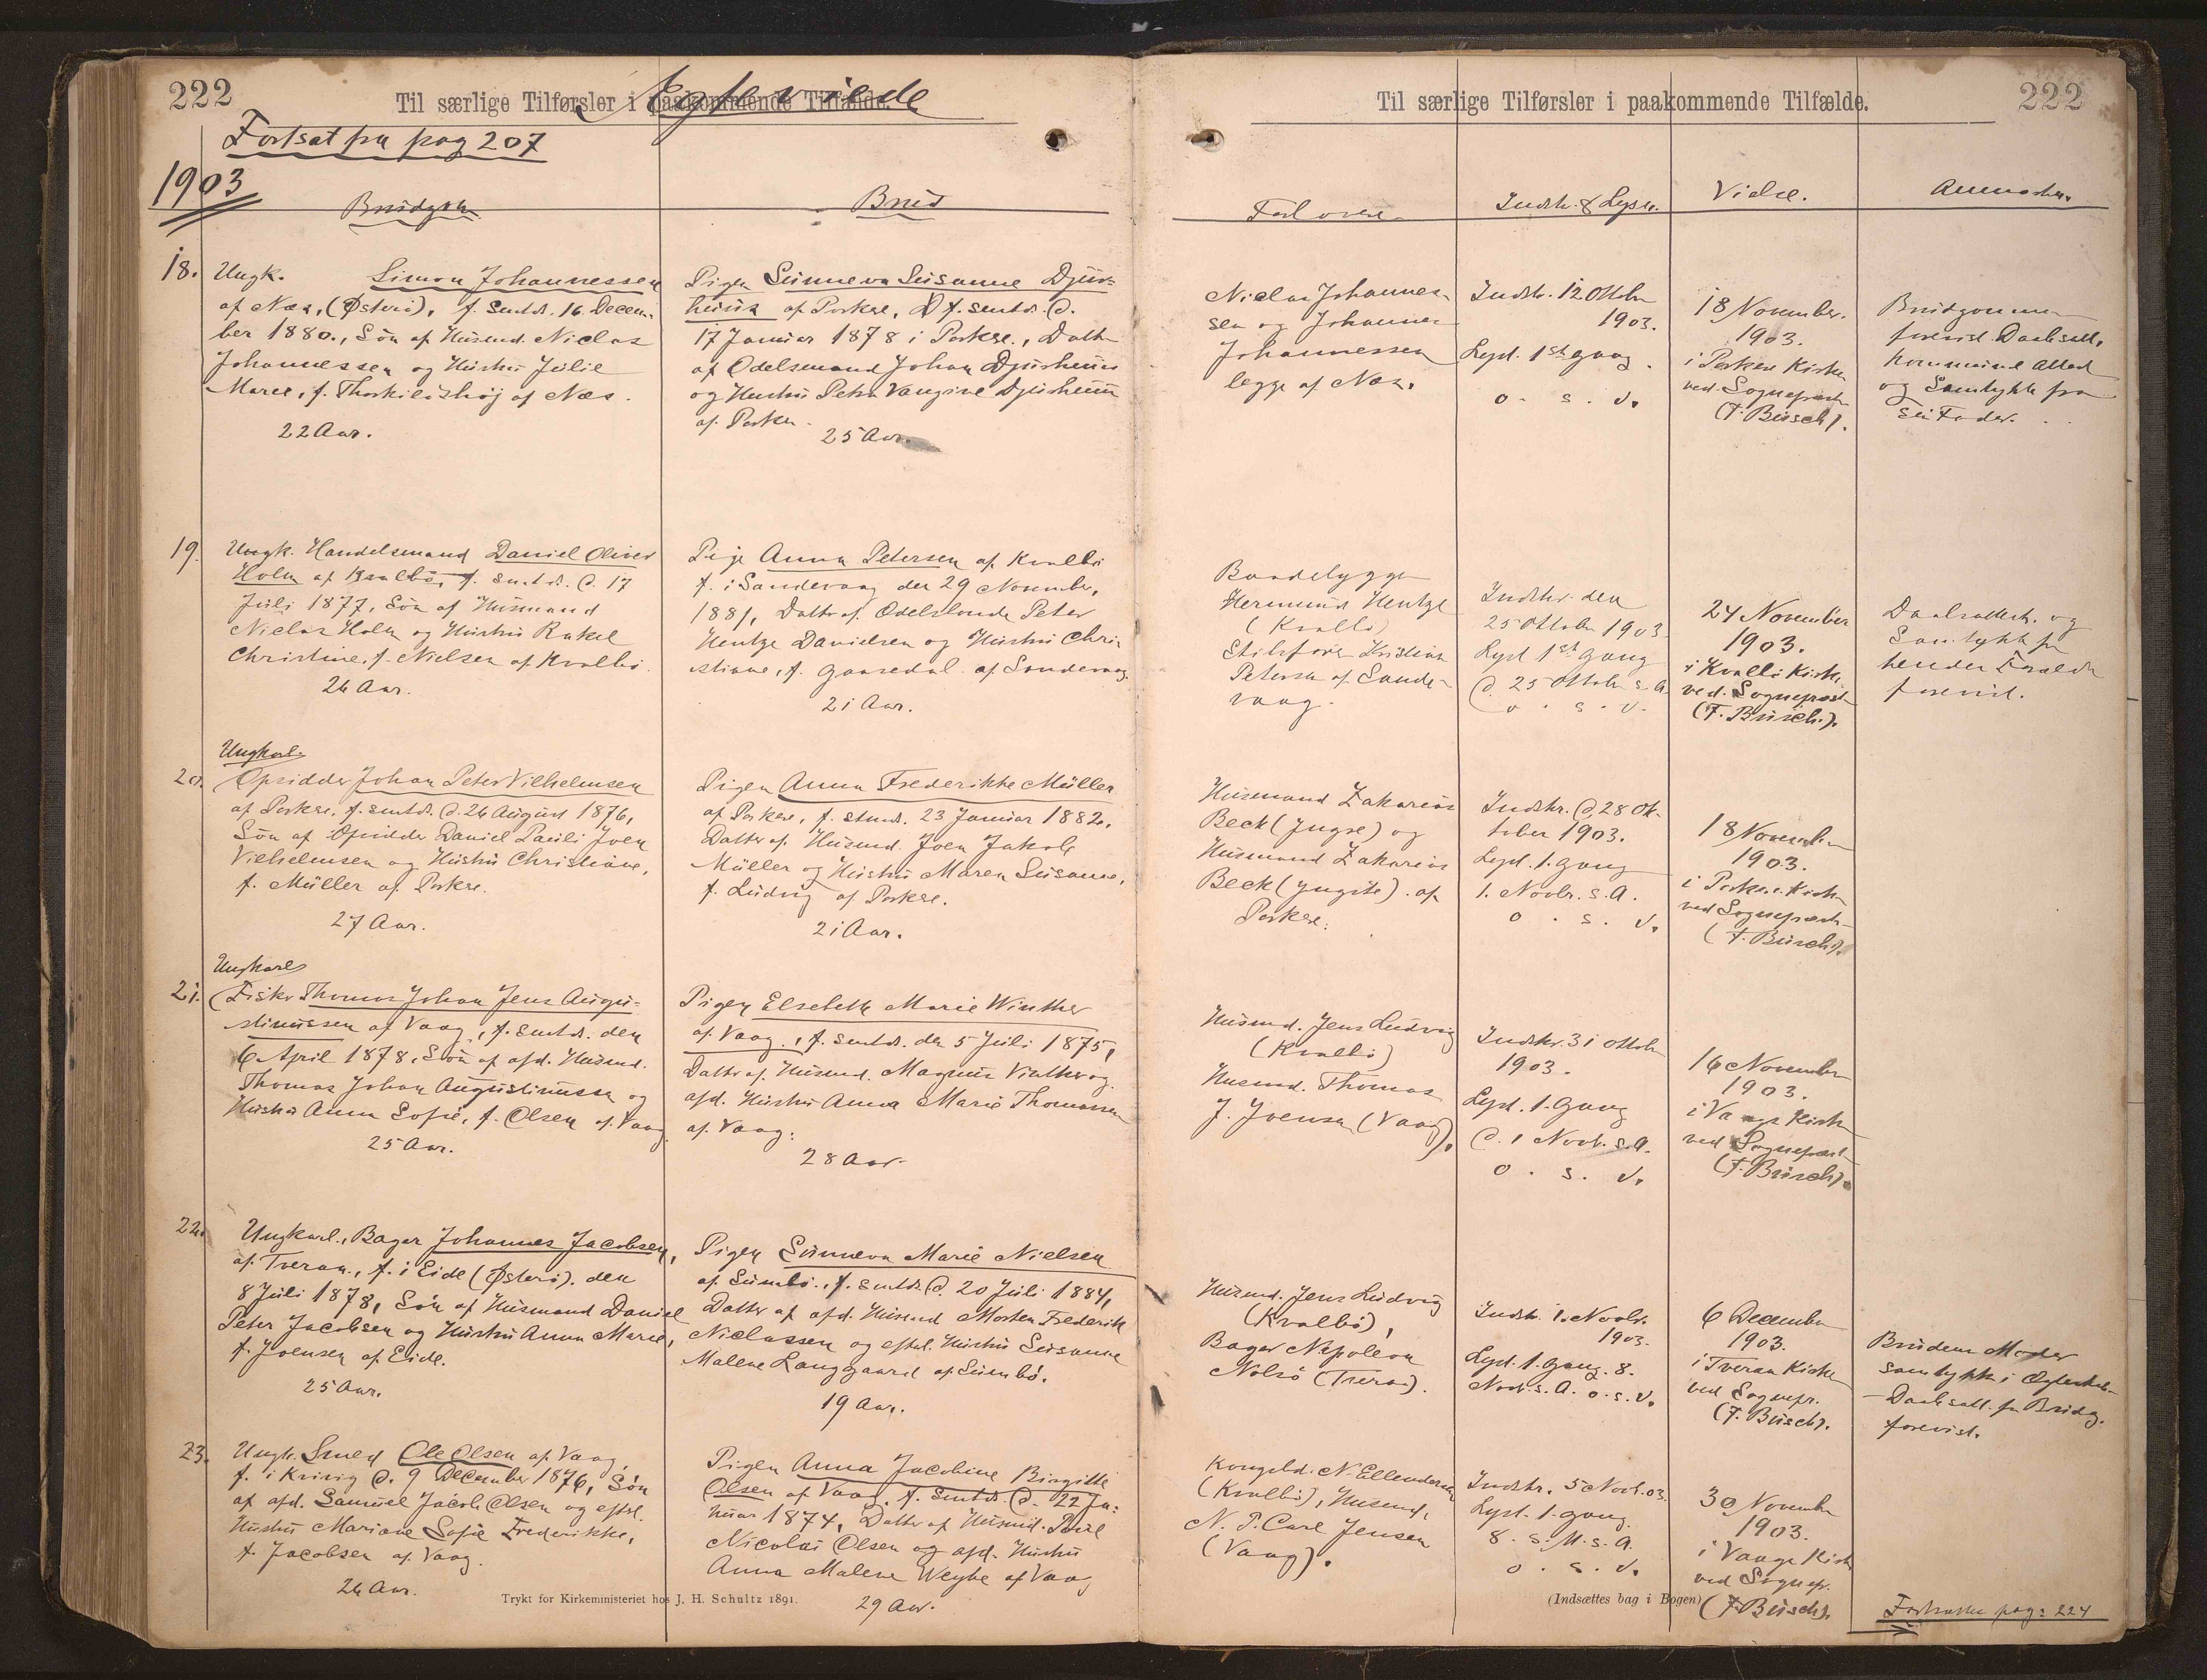 222
Til særlige Tilførsler i paakommende Tilfælde.
Ægteviede
Fortsat fra pag 207
1903
Brudgom
Brud
18.
Ungk. Simon Johannessen
af Næs, (Østerö), f. smtds. 16. Decem-
ber 1880., Sön af Husmd. Niclas
Johannessen og Hustru Julie
Maree, f. Thorkildshöj af Næs.
22 Aar.
Pigen Sunneva Susanne Djur-
huus af Porkere, f. smtds. d.
17 Januar 1878 i Porkere., Datter
af Odelsmand Johan Djurhuus
og Hustru Petra Vangine Djurhuus
af Porkere.
25 Aar.
19.
Ungk. Handelsmand Daniel Oliver
Holm af Kvalbö, f. smtds. d. 17
Juli 1877, Sön af Husmand
Niclas Holm og Hustru Rakel
Christine, f. Nielsen af Kvalbö.
26 Aar.
Pige Anna Petersen af Kvalbö
f. i Sandevaag den 29 November,
1881, Datter af Odelsbonde Peter
Hentze Danielsen og Hustru Chri-
stiane, f. Gaasedal af Sandevaag.
21 Aar.
20.
Ungkarl
Opsidder Johan Peter Vilhelmsen
af Porkere, f. smtds. d. 26 August 1876,
Sön af Opsidder Daniel Pauli Joen
Vilhelmsen og Hustru Christiane,
f. Müller af Porkere.
27 Aar.
Pigen Anna Frederikke Müller
af Porkere, f. stmds. 23 Januar 1882,
Datter af Husmd. Joen Jakob
Müller og Hustru Maren Susanne,
f. Ludvig af Porkere.
21 Aar.
21.
Ungkarl
Fisker Thomas Johan Jens Augu-
stinussen af Vaag, f. smtds. den
6 April 1878, Sön af afd. Husmd.
Thomas Johan Augustinussen og
Hustru Anna Sofie, f. Olsen af Vaag.
25 Aar.
Pigen Elsebeth Marie Winther
af Vaag., f. smtds. den 5 Juli 1875,
Datter af Husmd. Magnus Vinther og
afd. Hustru Anna Marie Thomassen
af Vaag.
28 Aar.
22.
Ungkarl., Bager Johannes Jacobsen,
af Tveraa., f. i Eide (Østerö). den
8 Juli 1878, Sön af Husmand Daniel
Peter Jacobsen og Hustru Anna Marie,
f. Joensen af Eide.
25 Aar.
Pigen Sunneva Marie Nielsen
af Sumbö., f. smtds. d. 20 Juli 1884,
Datter af afd. Husmd Morten Frederik
Niclassen og eftel. Hustru Susanne
Malene Langgaard af Sumbö.
19 Aar.
23.
Ungk. Smed Ole Olsen af Vaag.
f. i Krivig d. 9 December 1876, Sön
af afd. Samuel Jacob Olsen og eftel.
Hustru Mariane Sofie Frederikke,
f. Jacobsen af Vaag.
26 Aar.
Pigen Anna Jacobine Birgitte
Olsen af Vaag, f. smtds. d. 22 Ja-
nuar 1874, Datter af Husmd. Poul
Nicolai Olsen og afd. Hustru
Anna Malene Weyhe af Vaag
29 Aar.
Trykt for Kirkeministeriet hos J. H. Schultz 1891.
Til særlige Tilførsler i paakommende Tilfælde.
222
Forlovere
Indskr. & Lysn.
Vielse.
Anmærkn.
Niclas Johannes-
sen og Johannes
Johannessen
begge af Næs.
Indskr. 12 Oktober
1903.
Lyst. 1st gang.
o. s. v.
18 November.
1903.
i Porkere Kirke
ved Sognepræst
(F. Busch).
Brudgommen
forevist Daabsatt.
kommunal Attest
og Samtykke fra
sin Fader.
Baadebygger
Hermund Hentze
(Kvalbö)
Kristian
Petersen af Sande-
vaag.
Indskr. den
25 Oktober 1903
Lyst 1st gang
d. 25 Oktober s. A.
o. s. v.
24 November
1903.
i Kvalbö Kirke
ved. Sognepræst
(F. Busch.).
Daabsattest. og
Samtykke fra
hendes Forældre
forevist.
Husmand Zakarias
Beck (yngre) og
Husmand Zakarias
Beck (yngste). af
Porkere.
Indskr. d. 28 Ok-
tober 1903.
Lyst. 1. gang
1. Novbr. s. A.
o. s. v.
18 November
1903.
i Porkere Kirke
ved Sognepræst
(F. Busch).
Husmd. Jens Ludvig
(Kvalbö)
Husmd. Thomas
J. Joensen (Vaag).
Indskr. 31 Oktober
1903.
Lyst. 1. Gang
d. 1 Novb. s. A.
o. s. v.
16 November
1903.
i Vaags Kirke
ved Sognepræst
(F. Busch).
Husmd. Jens Ludvig
(Kvalbö),
Bager Napoleon
Nolsö (Tveraa).
Indskr. 1. Novbr.
1903.
Lyst. 1. gang. 8.
Novb. s. A. o. s. v.
6 December
1903.
i Tveraa Kirke
ved Sognepr.
(F. Busch).
Brudens Moder
samtykke i Ægteskab.
Daabsatt. fra Brudg.
forevist.
Kongsbd. N. Ellendersen
(Kvalbö), Husmd,
N. P. Carl Jensen
(Vaag).
Indskr. 5 Novb. 03.
Lyst. 1. gang.
8. s. M. s. A.
o. s. v.
30 November
1903.
i Vaags Kirke
ved Sognepr.
(F. Busch).
(Indsættes bag i Bogen)
Fortsættes pag: 224